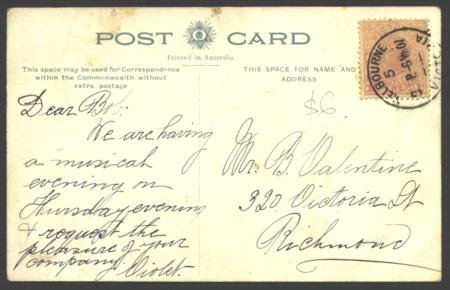 POST CARD
Printed in Australia
This space may be used for Correspondence
within the Commonwealth without
extra postage
THIS SPACE FOR NAME AND
ADDRESS
$6
Dear Bob.
We are having
a musical
evening on
Thursday evening
& request the
pleasure of your
company.
Violet.
Mr. B. Valentine
320 Victoria St
Richmond